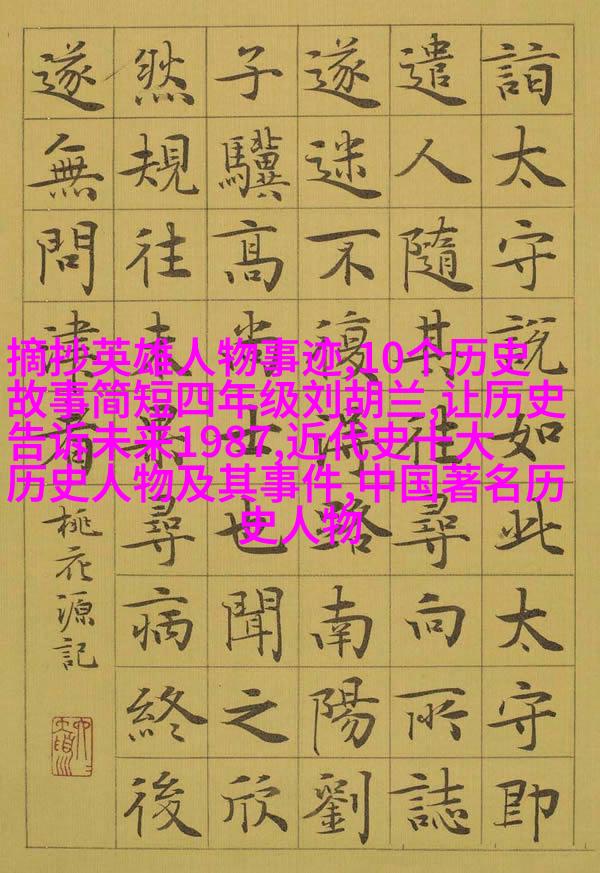 詣太守說如此太守即
遣人隨其往尋向所誌
遂迷不復得路南陽劉
子驥高尚士也聞之欣
然規往未果尋病終後
遂無問津者
桃花源記
摘抄英雄人物事迹,10个历史
故事简短四年级刘胡兰,让历史
告诉未来1987,近代史十大
历史人物及其事件,中国著名历
史人物